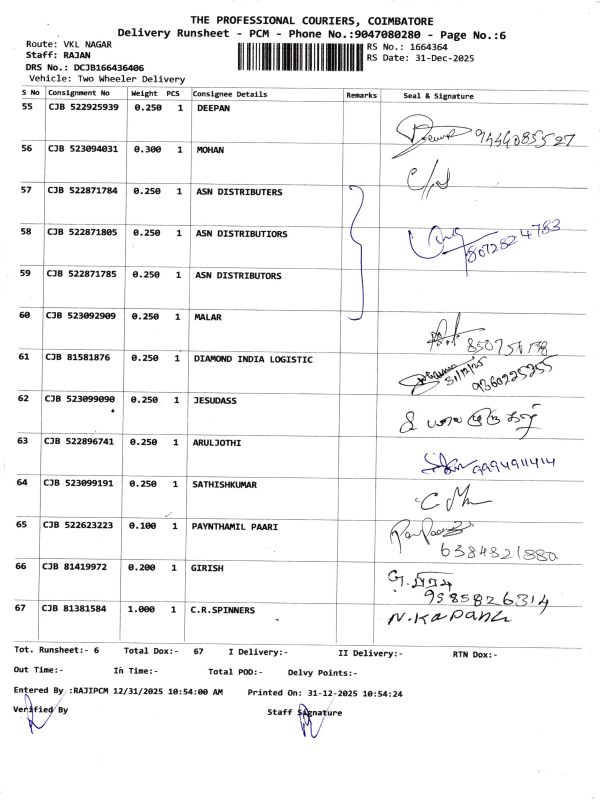 THE PROFESSIONAL COURIERS, COIMBATORE
Delivery Runsheet - PCM - Phone No.:9047080280 - Page No.:6
Route: VKL NAGAR RS No.: 1664364
Staff: RAJAN RS Date: 31-Dec-2025
DRS No.: DCJB166436406
Vehicle: Two Wheeler Delivery
S No Consignment No Weight PCS Consignee Details Remarks Seal & Signature
55 CJB 522925939 0.250 1 DEEPAN
9444085527
56 CJB 523094031 0.300 1 MOHAN
57 CJB 522871784 0.250 1 ASN DISTRIBUTERS
58 CJB 522871805 0.250 1 ASN DISTRIBUTIORS
8072824783
59 CJB 522871785 0.250 1 ASN DISTRIBUTORS
60 CJB 523092909 0.250 1 MALAR
61 CJB 81581876 0.250 1 DIAMOND INDIA LOGISTIC
31/12/25
9360225255
62 CJB 523099090 0.250 1 JESUDASS
63 CJB 522896741 0.250 1 ARULJOTHI
9994911414
64 CJB 523099191 0.250 1 SATHISHKUMAR
65 CJB 522623223 0.100 1 PAYNTHAMIL PAARI
6384821880
66 CJB 81419972 0.200 1 GIRISH
9585826314
67 CJB 81381584 1.000 1 C.R.SPINNERS
Tot. Runsheet:- 6 Total Dox:- 67 I Delivery:- II Delivery:- RTN Dox:-
Out Time:- In Time:- Total POD:- Delvy Points:-
Entered By :RAJIPCM 12/31/2025 10:54:00 AM Printed On: 31-12-2025 10:54:24
Verified By Staff Signature